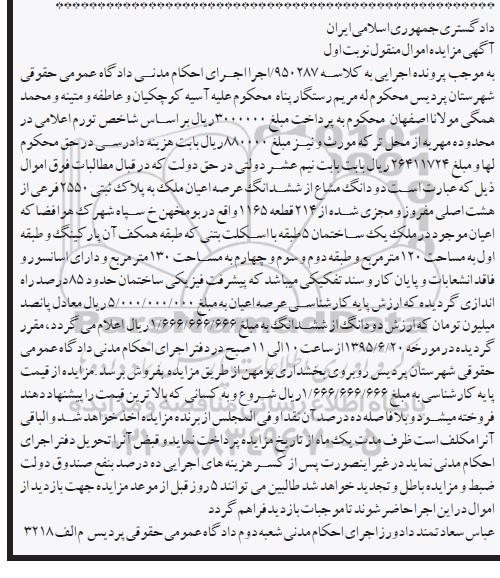 دادگستری جمهوری اسلامی ایران
آگهی مزایده اموال منقول نوبت اول
به موجب پرونده اجرایی به کلاسه ۹۵۰۲۸۷/اجرا اجرای احکام مدنی دادگاه عمومی حقوقی
شهرستان پردیس محکوم له مریم رستگار پناه محکوم علیه آسیه کوچکیان و عاطفه و متینه و محمد
همگی مولانا اصفهان محکوم به پرداخت مبلغ ۳۰۰۰۰۰۰ ریال بر اساس شاخص تورم اعلامی در
محدوده مهریه از محل ترکه مورث و نیز مبلغ ۸۸۰۰۰۰ ریال بابت هزینه دادرسی در حق محکوم
لها و مبلغ ۲۶۴۱۱۷۲۴ ریال بابت بابت نیم عشر دولتی در حق دولت که در قبال مطالبات فوق اموال
ذیل که عبارت است دو دانگ مشاع از ششدانگ عرصه اعیان ملک به پلاک ثبتی ۲۵۵۰ فرعی از
هشت اصلی مفروز و مجزی شده از ۲۱۴ قطعه ۱۱۶۵ واقع در بومهن خ سپاه شهرک هوافضا که
اعیان موجود در ملک یک ساختمان ۵ طبقه با اسکلت بتنی که طبقه همکف آن پارکینگ و طبقه
اول به مساحت ۱۲۰ متر مربع و طبقه دوم و سوم و چهارم به مساحت ۱۳۰ متر مربع و دارای آسانسور و
فاقد انشعابات و پایان کار و سند تفکیکی میباشد که پیشرفت فیزیکی ساختمان حدود ۸۵ درصد راه
اندازی گردیده که ارزش پایه کارشناسی عرصه اعیان به مبلغ ۵/۰۰۰/۰۰۰/۰۰۰ ریال معادل پانصد
میلیون تومان که ارزش دو دانگ از ششدانگ به مبلغ ۱/۶۶۶/۶۶۶/۶۶۶ ریال اعلام می گردد، مقرر
گردیده در مورخه ۱۳۹۵/۶/۲۰ از ساعت ۱۰ الی ۱۱ صبح در دفتر اجرای احکام مدنی دادگاه عمومی
حقوقی شهرستان پردیس روبروی بخشداری بومهن از طریق مزایده بفروش برسد. مزایده از قیمت
پایه کارشناسی به مبلغ ۱/۶۶۶/۶۶۶/۶۶۶ ریال شروع و به کسانی که بالاترین قیمت را پیشنهاد دهند
فروخته میشود و بلافاصله ده درصد آن نقدا و فی المجلس از برنده مزایده اخذ خواهد شد و الباقی
آنرا مکلف است ظرف مدت یک ماه از تاریخ مزایده پرداخت نماید و قبض آنرا تحویل دفتر اجرای
احکام مدنی نماید در غیر اینصورت پس از کسر هزینه های اجرایی ده درصد بنفع صندوق دولت
ضبط و مزایده باطل و تجدید خواهد شد طالبین می توانند ۵ روز قبل از موعد مزایده جهت بازدید از
اموال در این اجرا حاضر شوند تا موجبات بازدید فراهم گردد
عباس سعادتمند دادورز اجرای احکام مدنی شعبه دوم دادگاه عمومی حقوقی پردیس م الف ۳۲۱۸